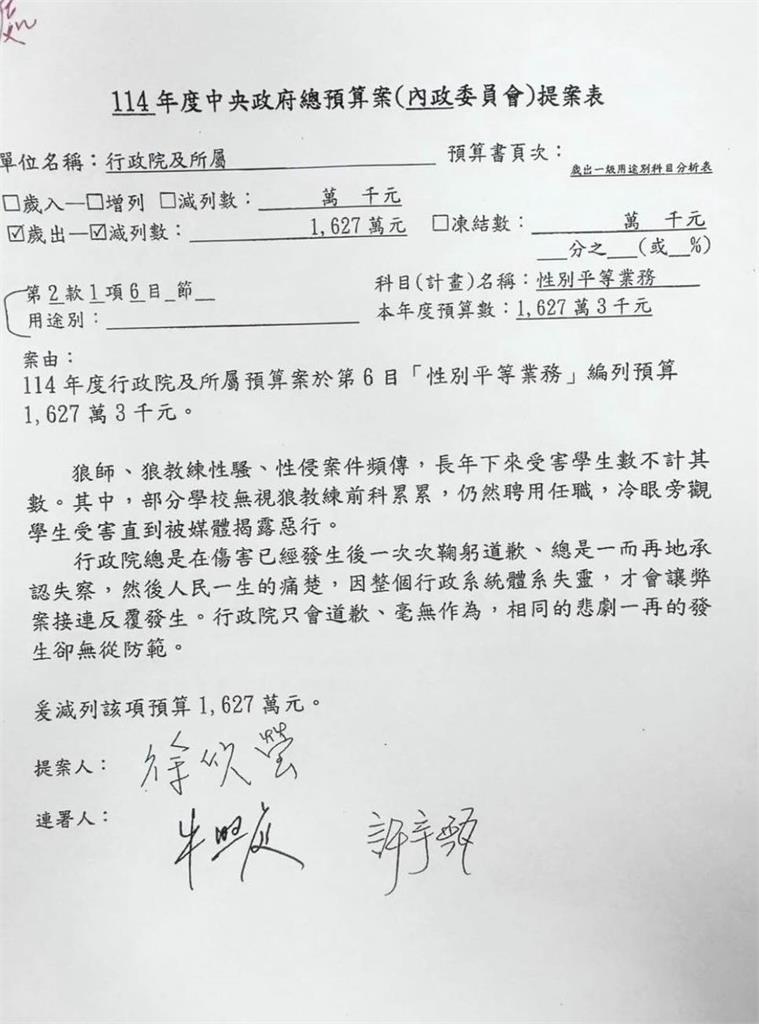 114年度中央政府總預算案(內政委員會)提案表
單位名稱：行政院及所屬 預算書頁次：歲出一級用途別科目分析表
☐歲入—☐增列 ☐減列數： 萬 千元
☑歲出—☑減列數： 1,627萬元 ☐凍結數： 萬 千元
__分之__(或__%)
第2款1項6目_節__ 科目(計畫)名稱：性別平等業務
用途別： 本年度預算數：1,627萬3千元
案由：
114年度行政院及所屬預算案於第6目「性別平等業務」編列預算
1,627萬3千元。
狼師、狼教練性騷、性侵案件頻傳，長年下來受害學生數不計其
數。其中，部分學校無視狼教練前科累累，仍然聘用任職，冷眼旁觀
學生受害直到被媒體揭露惡行。
行政院總是在傷害已經發生後一次次鞠躬道歉、總是一而再地承
認失察，然後人民一生的痛楚，因整個行政系統體系失靈，才會讓弊
案接連反覆發生。行政院只會道歉、毫無作為，相同的悲劇一再的發
生卻無從防範。
爰減列該項預算1,627萬元。
提案人：徐欣瑩
連署人：牛煦庭 許宇甄